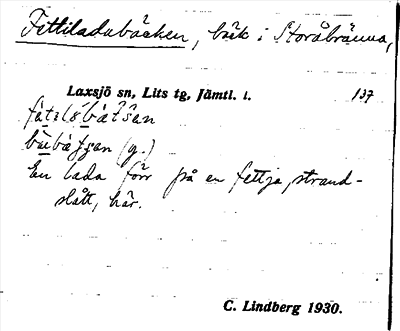 Fettiladubäcken, bäck i Storåbränna,
Laxsjö sn, Lits tg, Jämtl. l. 137
(g.)
En lada förr på en fettja, strand-
slått, här.
C. Lindberg 1930.